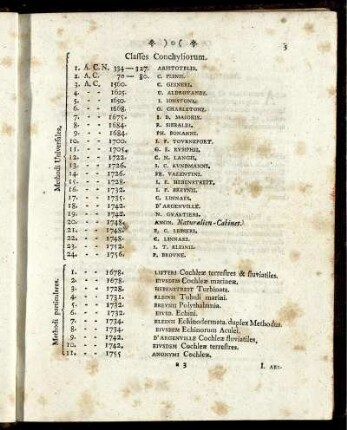 )o(
3
Classes Conchyliorum.
Methodi Universales,
1. A. C. N. 334—127. ARISTOTELIS,
2. A. C. 70— 80. C. PLINII.
3. A. C. 1560. C. GESNERI,
4. - - 1605. U. ALDROVANDI,
5. - - 1650. I. IONSTONII,
6. - - 1668. G. CHARLETONI,
7. - - 1675. I. D. MAIORIS,
8. - - 1684. R. SIBALDI,
9. - - 1684. PH. BONANNI,
10. - - 1700. I. P. TOURNEFORT,
11. - - 1705. G. E. RVMPHII,
12. - - 1722. C. N. LANGII,
13. - - 1726. I. C. KVNDMANNI,
14. - - 1726. FR. VALENTINI,
15. - - 1728. I. E. HEBENSTREIT,
16. - - 1732. I. P. BREYNII,
17. - - 1735. C. LINNAEI,
18. - - 1742. D'ARGENVILLE,
19. - - 1742. N. GVALTIERI,
20. - - 1748. ANON. Naturalien-Cabinet.
21. - - 1748. F. C. LESSERI,
22. - - 1748. C. LINNAEI,
23. - - 1752. I. T. KLEINII,
24. - - 1756. P. BROVNE.
Methodi particulares.
1. - - 1678. LISTERI Cochleæ terrestres & fluviatiles.
2. - - 1678. EIVSDEM Cochleæ marinæ,
3. - - 1728. HEBENSTREIT Turbinata.
4. - - 1731. KLEINII Tubuli marini.
5. - - 1732. BREYNII Polythalamia.
6. - - 1732. EIVSD. Echini.
7. - - 1734. KLEINII Echinodermata. duplex Methodus.
8. - - 1734. EIVSDEM Echinorum Aculei.
9. - - 1742. D'ARGENVILLE Cochleæ fluviatiles,
10. - - 1742, EIVSDEM Cochleæ terrestres.
11. - - 1755 ANONYMI Cochleæ.
3
I. ARI-